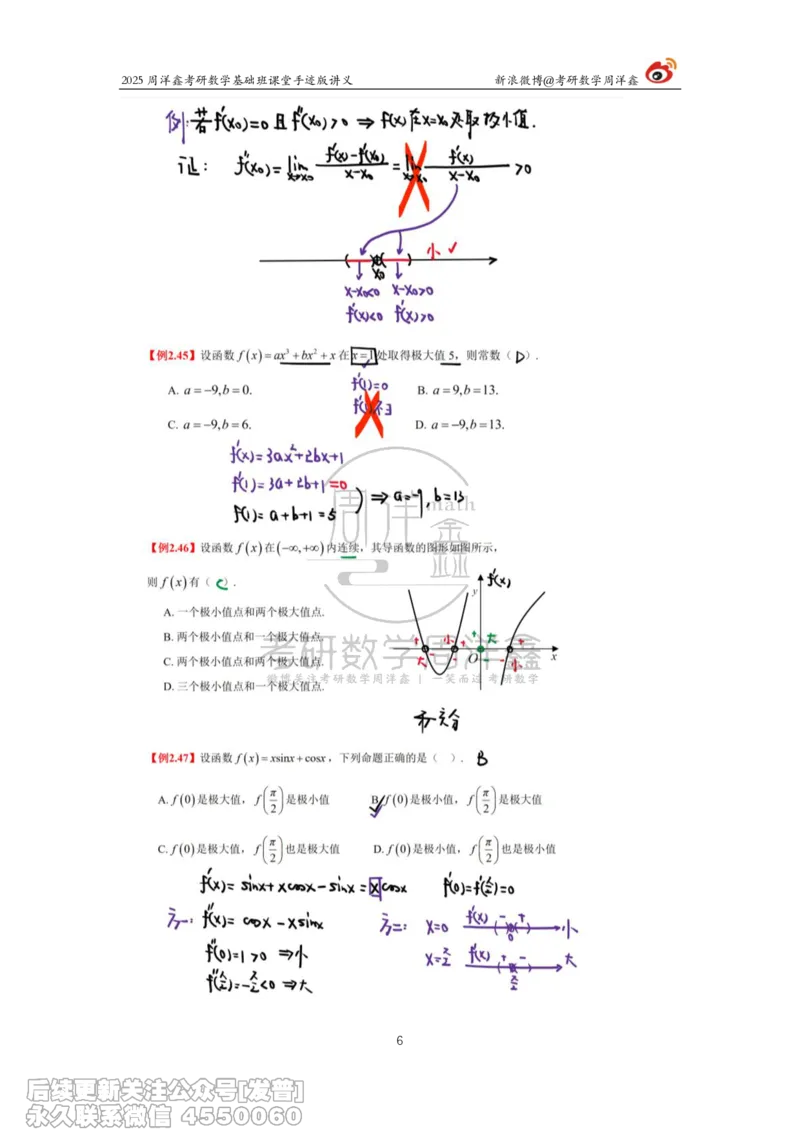 2025 周洋鑫考研数学基础班课堂手迹版讲义 新浪微博@考研数学周洋鑫
例: 若f'(x₀)=0 且 f''(x₀)>0 ⇒ f(x)在x=x₀处取极小值.
证: f''(x₀)=lim x→x₀ (f'(x)-f'(x₀))/(x-x₀) = lim x→x₀ f'(x)/(x-x₀) >0
小 ✓
x₀
x-x₀<0 x-x₀>0
f'(x)<0 f'(x)>0
【例2.45】设函数 f(x)=ax³+bx²+x 在 x=1 处取得极大值 5，则常数（ D ）.
A. a=-9,b=0. f'(1)=0 B. a=9,b=13.
C. a=-9,b=6. D. a=-9,b=13.
f'(x)=3ax²+2bx+1
f'(1)=3a+2b+1=0
f(1)=a+b+1=5 ⇒ a=-9, b=13
【例2.46】设函数 f(x) 在 (-∞,+∞) 内连续，其导函数的图形如图所示，
则 f(x) 有（ C ）.
f'(x)
y
A. 一个极小值点和两个极大值点.
B. 两个极小值点和一个极大值点.
C. 两个极小值点和两个极大值点.
D. 三个极小值点和一个极大值点.
+ 小 + + 大 +
大 - - O - - 小 x
周洋鑫
math
考研数学周洋鑫
微博关注考研数学周洋鑫 | 一笑而过 考研数学
【例2.47】设函数 f(x)=xsinx+cosx，下列命题正确的是（ ）. B
A. f(0) 是极大值，f(π/2) 是极小值 B. f(0) 是极小值，f(π/2) 是极大值
C. f(0) 是极大值，f(π/2) 也是极大值 D. f(0) 是极小值，f(π/2) 也是极小值
f'(x)= sinx+xcosx-sinx = xcosx f'(0)=f'(π/2)=0
方一: f''(x)= cosx-xsinx 方二: x=0 f'(x) - + 0 小
f''(0)=1>0 ⇒小 x=π/2 f'(x) + - π/2 大
f''(π/2)=-π/2<0 ⇒大
6
后续更新关注公众号[发普]
永久联系微信 4550060